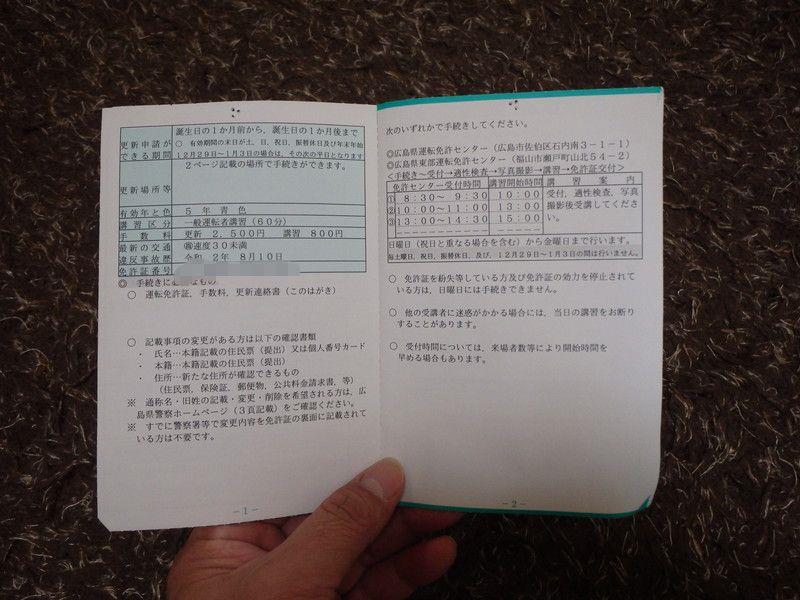 更新申請ができる期間
誕生日の1か月前から、誕生日の1か月後まで
○ 有効期間の末日が土、日、祝日、振替休日及び年末年始
12月29日~1月3日の場合は、その次の平日となります
更新場所等
2ページ記載の場所で手続きができます。
有効年と色 5年 青色
講習区分 一般運転者講習(60分)
手数料 更新 2,500円 講習 800円
最新の交通違反事故歴
速度30未満
令和 2年 8月10日
免許証番号
◎ 手続きに必要なもの
○ 運転免許証、手数料、更新連絡書(このはがき)
○ 記載事項の変更がある方は以下の確認書類
・ 氏名…本籍記載の住民票(提出)又は個人番号カード
・ 本籍…本籍記載の住民票(提出)
・ 住所…新たな住所が確認できるもの
(住民票、保険証、郵便物、公共料金請求書、等)
※ 通称名・旧姓の記載・変更・削除を希望される方は、広
島県警察ホームページ(3頁記載)をご確認ください。
※ すでに警察署等で変更内容を免許証の裏面に記載されて
いる方は不要です。
-1-
次のいずれかで手続きしてください。
◎広島県運転免許センター(広島市佐伯区石内南3-1-1)
◎広島県東部運転免許センター(福山市瀬戸町山北54-2)
<手続き→受付→適性検査→写真撮影→講習→免許証交付>
免許センター受付時間 講習開始時間 講習案内
① 8:30~ 9:30 10:00
②10:00~11:00 13:00
③13:00~14:30 15:00
受付、適性検査、写真
撮影後受講してくださ
い。
日曜日(祝日と重なる場合を含む)から金曜日まで行います。
毎土曜日、祝日、振替休日、及び、12月29日~1月3日の間は行いません。
○ 免許証を紛失等している方及び免許証の効力を停止されて
いる方は、日曜日には手続きできません。
○ 他の受講者に迷惑がかかる場合には、当日の講習をお断り
することがあります。
○ 受付時間については、来場者数等により開始時間を
早める場合もあります。
-2-